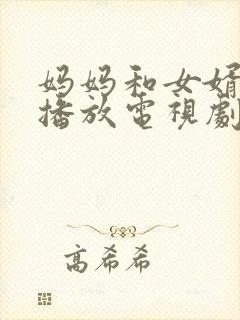 妈妈和女婿
播放電視劇
高希希